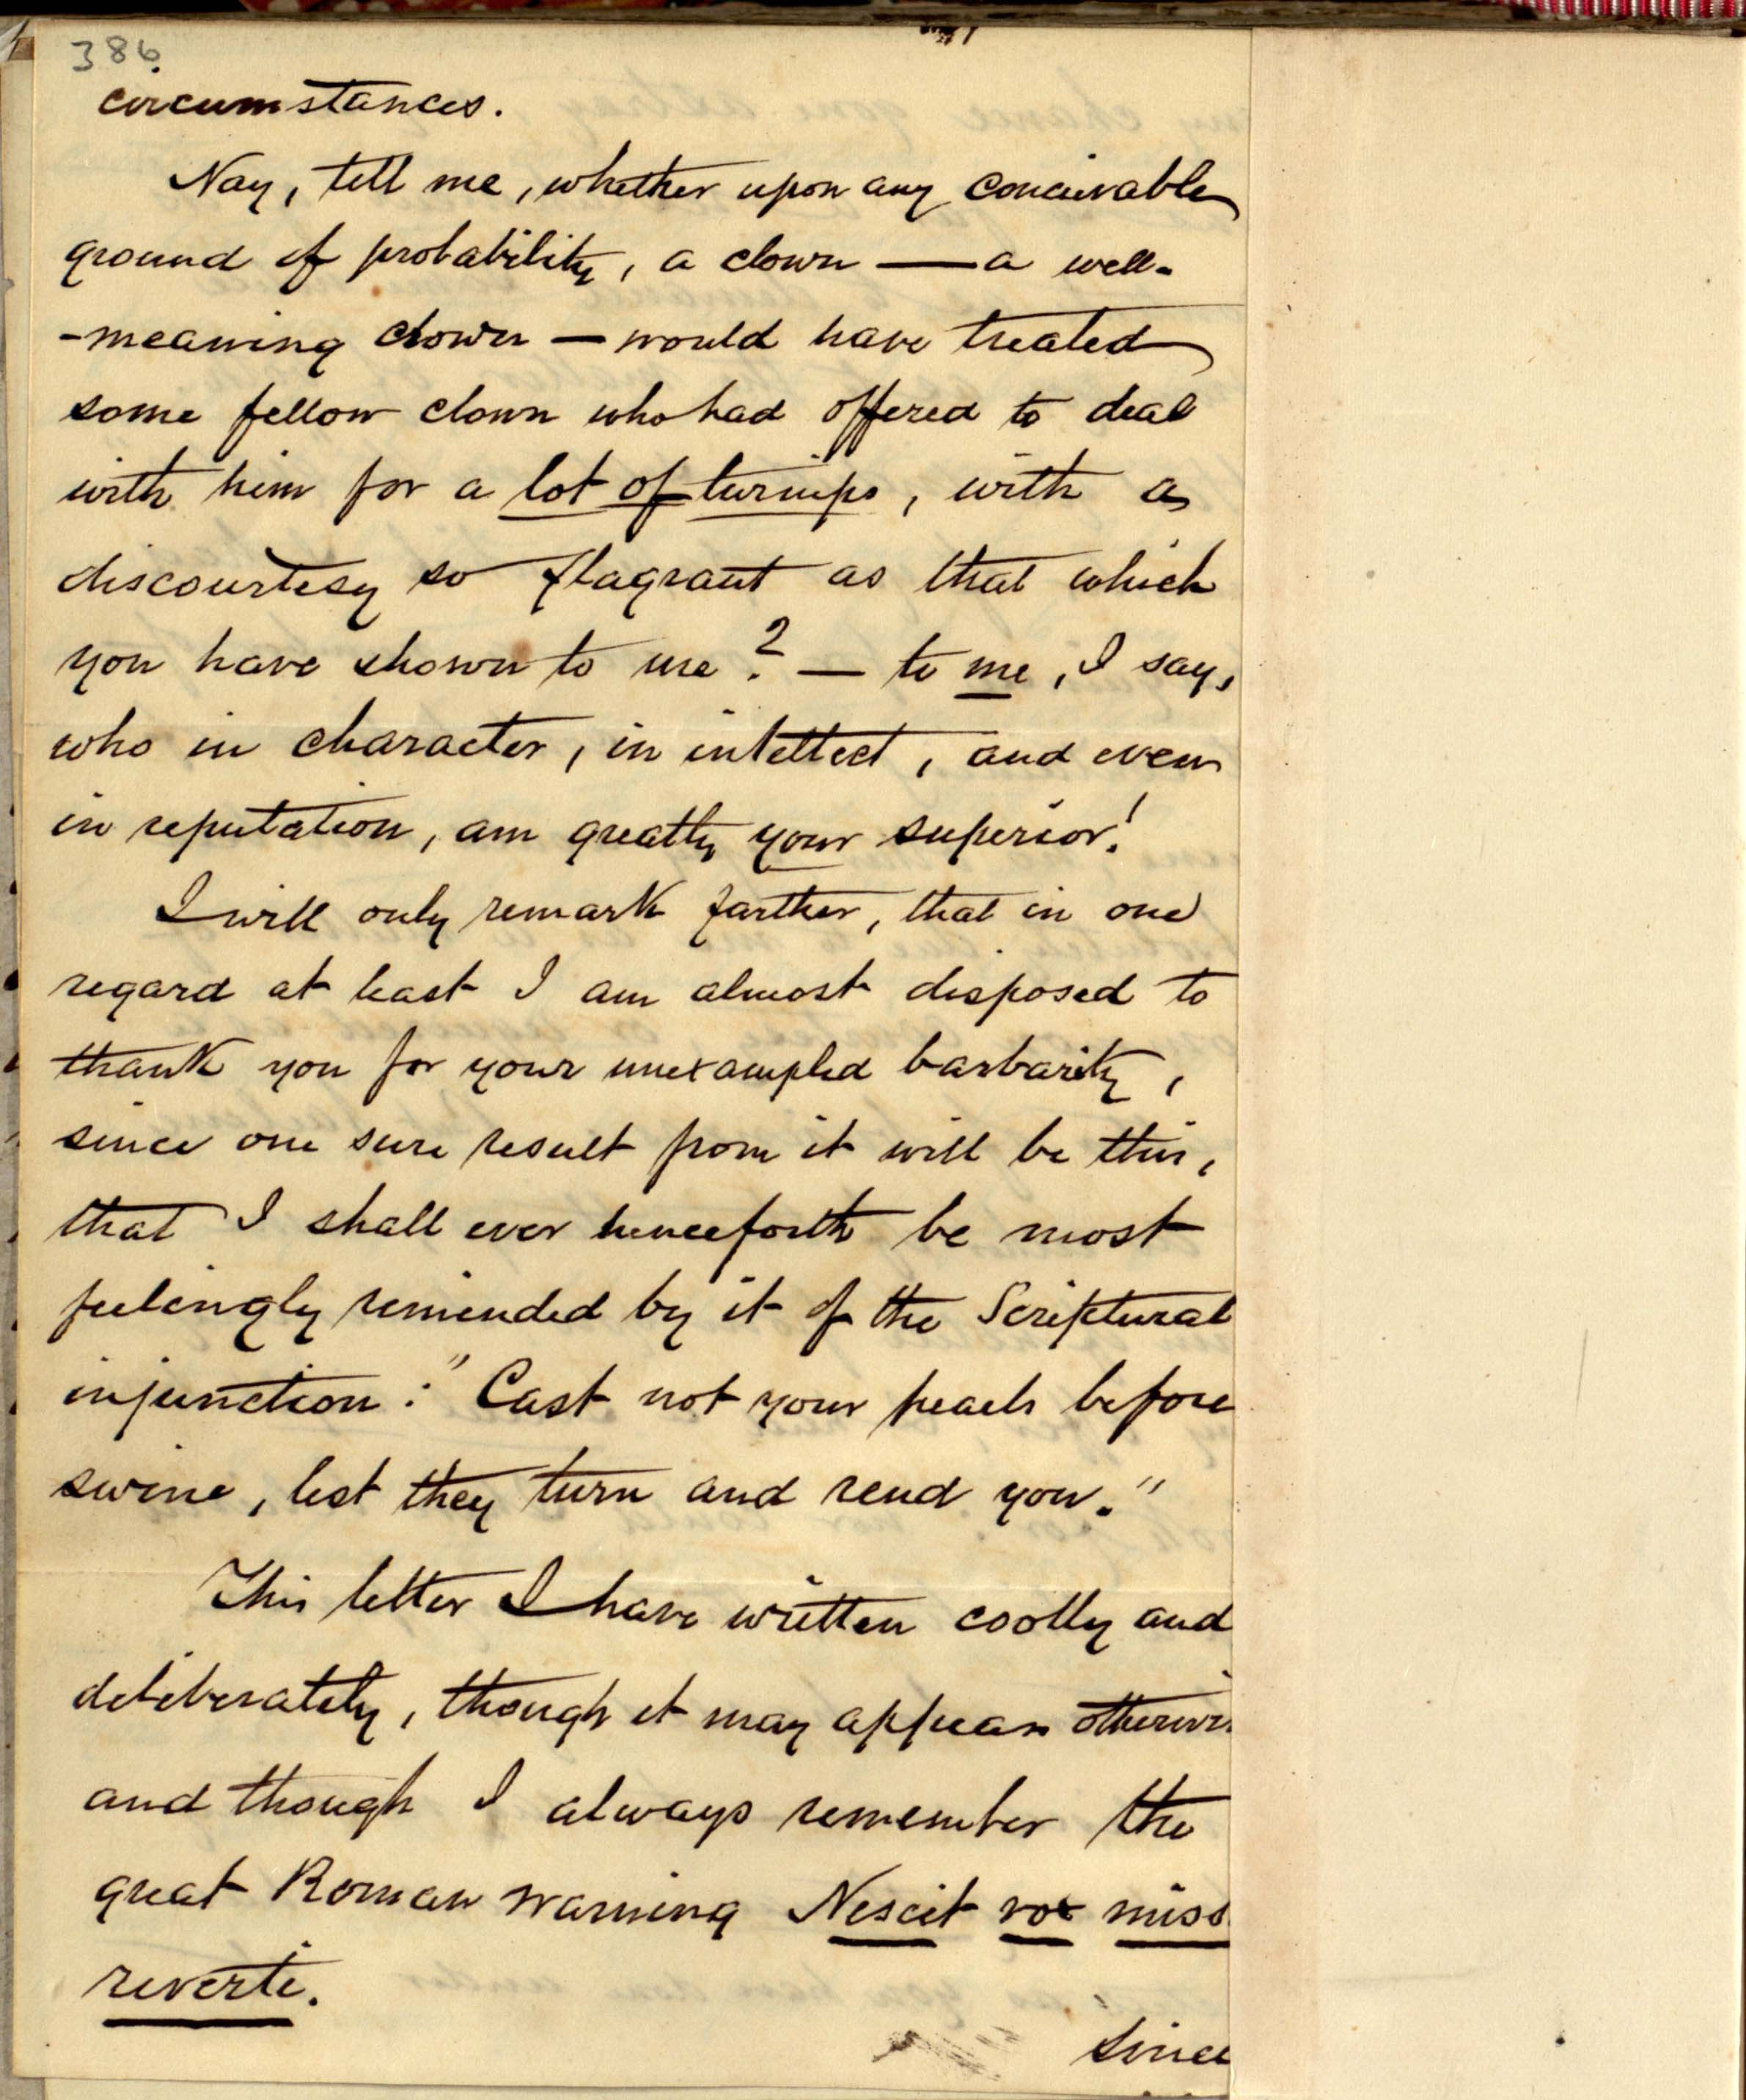 386.
circumstances.
Nay, tell me, whether upon any conceivable
ground of probability, a clown — a well-
-meaning clown — would have treated
some fellow clown who had offered to deal
with him for a lot of turnips, with a
discourtesy so flagrant as that which
you have shown to me? — to me, I say,
who in character, in intellect, and even
in reputation, am greatly your superior!
I will only remark farther, that in one
regard at least I am almost disposed to
thank you for your unexampled barbarity,
since one sure result from it will be this,
that I shall ever henceforth be most
feelingly reminded by it of the Scriptural
injunction: "Cast not your pearls before
swine, lest they turn and rend you."
This letter I have written coolly and
deliberately, though it may appear otherwi
and though I always remember the
great Roman warning Nescit vox miss
reverti.
since